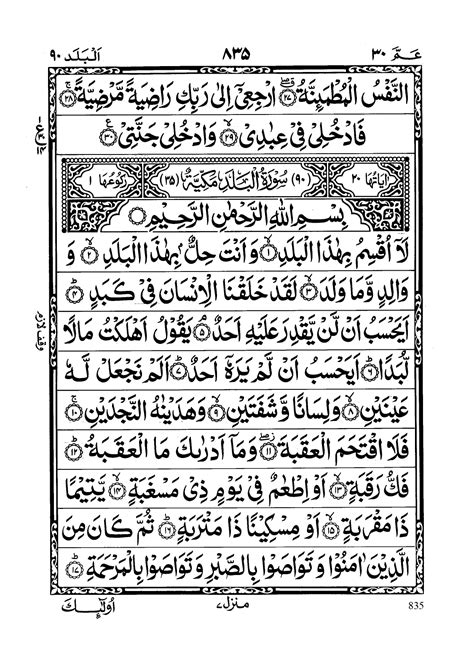 عـمّ ٣٠ ٨٣٥ البلد ٩٠
النَّفْسُ الْمُطْمَئِنَّةُ ﴿٢٧﴾ ارْجِعِيْٓ اِلٰى رَبِّكِ رَاضِيَةً مَّرْضِيَّةً ﴿٢٨﴾
فَادْخُلِيْ فِيْ عِبٰدِيْ ﴿٢٩﴾ وَادْخُلِيْ جَنَّتِيْ ﴿٣٠﴾
اٰيَاتُهَا ٢٠ (٩٠) سُوْرَةُ الْبَلَدِ مَكِّيَّةٌ (٣٥) رُكُوْعُهَا ١
بِسْمِ اللّٰهِ الرَّحْمٰنِ الرَّحِيْمِ
لَآ اُقْسِمُ بِهٰذَا الْبَلَدِ ﴿١﴾ وَاَنْتَ حِلٌّۢ بِهٰذَا الْبَلَدِ ﴿٢﴾ وَ
وَالِدٍ وَّمَا وَلَدَ ﴿٣﴾ لَقَدْ خَلَقْنَا الْاِنْسَانَ فِيْ كَبَدٍ ﴿٤﴾
اَيَحْسَبُ اَنْ لَّنْ يَّقْدِرَ عَلَيْهِ اَحَدٌ ﴿٥﴾ يَقُوْلُ اَهْلَكْتُ مَالًا
لُّبَدًا ﴿٦﴾ اَيَحْسَبُ اَنْ لَّمْ يَرَهٗٓ اَحَدٌ ﴿٧﴾ اَلَمْ نَجْعَلْ لَّهٗ
عَيْنَيْنِ ﴿٨﴾ وَلِسَانًا وَّشَفَتَيْنِ ﴿٩﴾ وَهَدَيْنٰهُ النَّجْدَيْنِ ﴿١٠﴾
فَلَا اقْتَحَمَ الْعَقَبَةَ ﴿١١﴾ وَمَآ اَدْرٰىكَ مَا الْعَقَبَةُ ﴿١٢﴾
فَكُّ رَقَبَةٍ ﴿١٣﴾ اَوْ اِطْعٰمٌ فِيْ يَوْمٍ ذِيْ مَسْغَبَةٍ ﴿١٤﴾ يَّتِيْمًا
ذَا مَقْرَبَةٍ ﴿١٥﴾ اَوْ مِسْكِيْنًا ذَا مَتْرَبَةٍ ﴿١٦﴾ ثُمَّ كَانَ مِنَ
الَّذِيْنَ اٰمَنُوْا وَتَوَاصَوْا بِالصَّبْرِ وَتَوَاصَوْا بِالْمَرْحَمَةِ ﴿١٧﴾
اُولٰٓئِكَ منزل ٧ 835